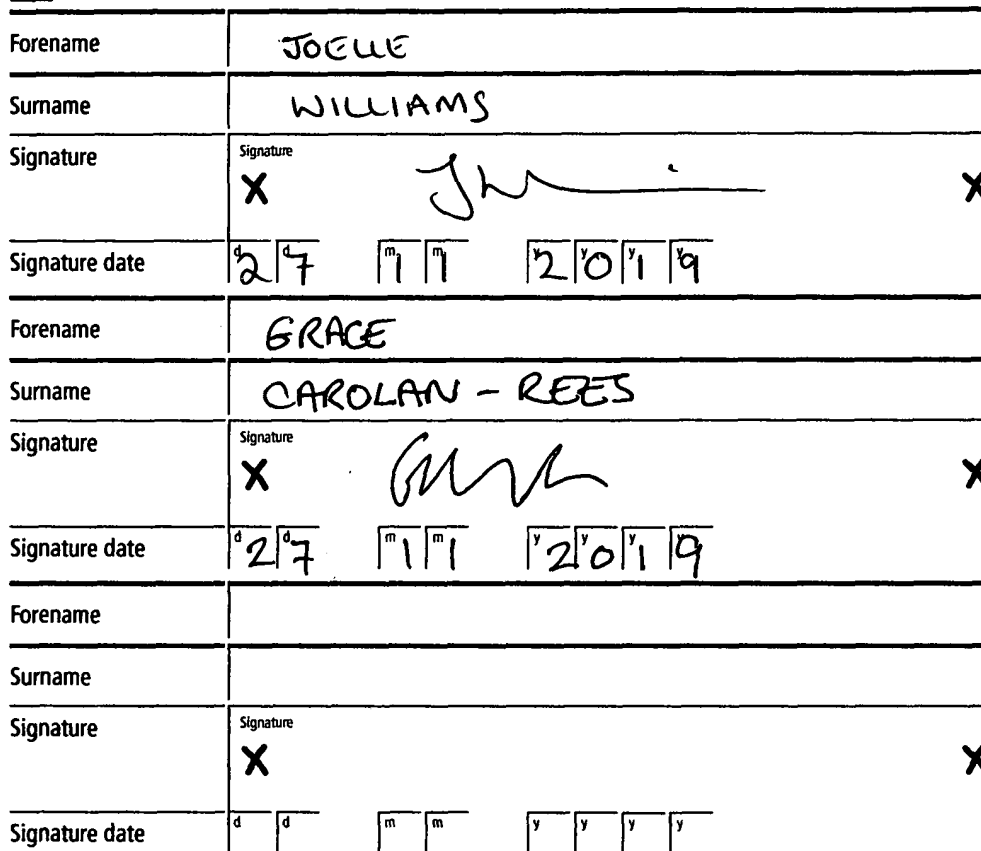 Forename JOELLE
Surname WILLIAMS
Signature Signature
X X
Signature date d2 d7 m1 m1 y2 y0 y1 y9
Forename GRACE
Surname CAROLAN - REES
Signature Signature
X X
Signature date d2 d7 m1 m1 y2 y0 y1 9
Forename
Surname
Signature Signature
X X
Signature date d d m m y y y y